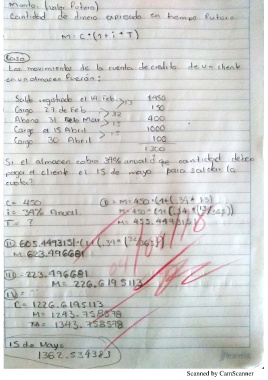 Monto: (Valor Futuro)
Cantidad de dinero expresado en tiempo futuro
M = C * (1 + i * T)
Caso
Los movimientos de la cuenta de credito de un cliente
en un almacen fueron:
Saldo registrado el 14 Feb. >13 $450
Cargo 27 de Feb >32 150
Abono 31 Marzo >15 400
Cargo al 15 Abril >15 1000
Cargo 30 Abril 100
1300
Si el almacen cobra 39% anual d que cantidad debera
pagar el cliente el 15 de mayo para saldar la
cuenta?
C = 450
i = 39% Anual
T = ?
M = 623.496681
= 223.496681
M = 226.6195113
C = 1226.6195113
M = 1243.758578
M = 1343.758578
15 de Mayo
1362.534381
Scanned by CamScanner